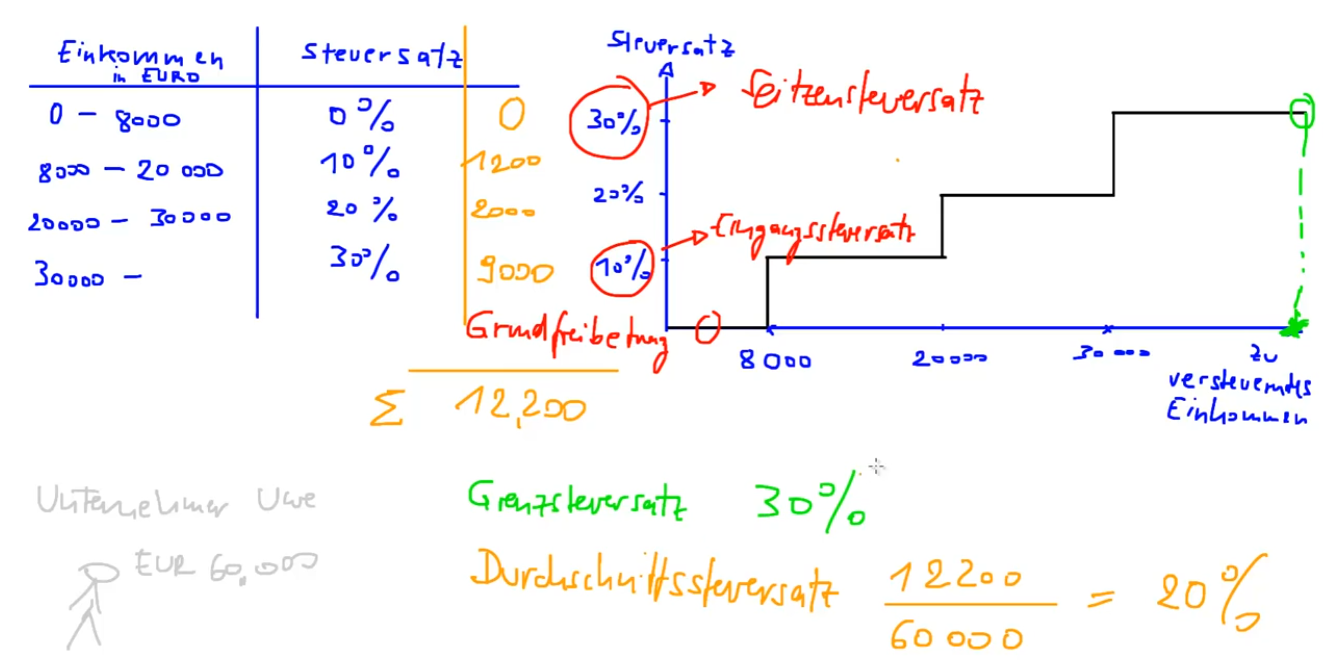 Einkommen in EURO Steuersatz
0 - 8000 0% 0
8000 - 20 000 10% 1200
20000 - 30000 20% 2000
30000 - 30% 9000
Σ 12,200
Steuersatz
30% Spitzensteuersatz
20%
10% Eingangssteuersatz
Grundfreibetrag 0
8000 20000 30 000 zu
versteuerndes
Einkommen
Unternehmer Uwe
EUR 60,000
Grenzsteuersatz 30%
Durchschnittssteuersatz 12200 / 60 000 = 20%